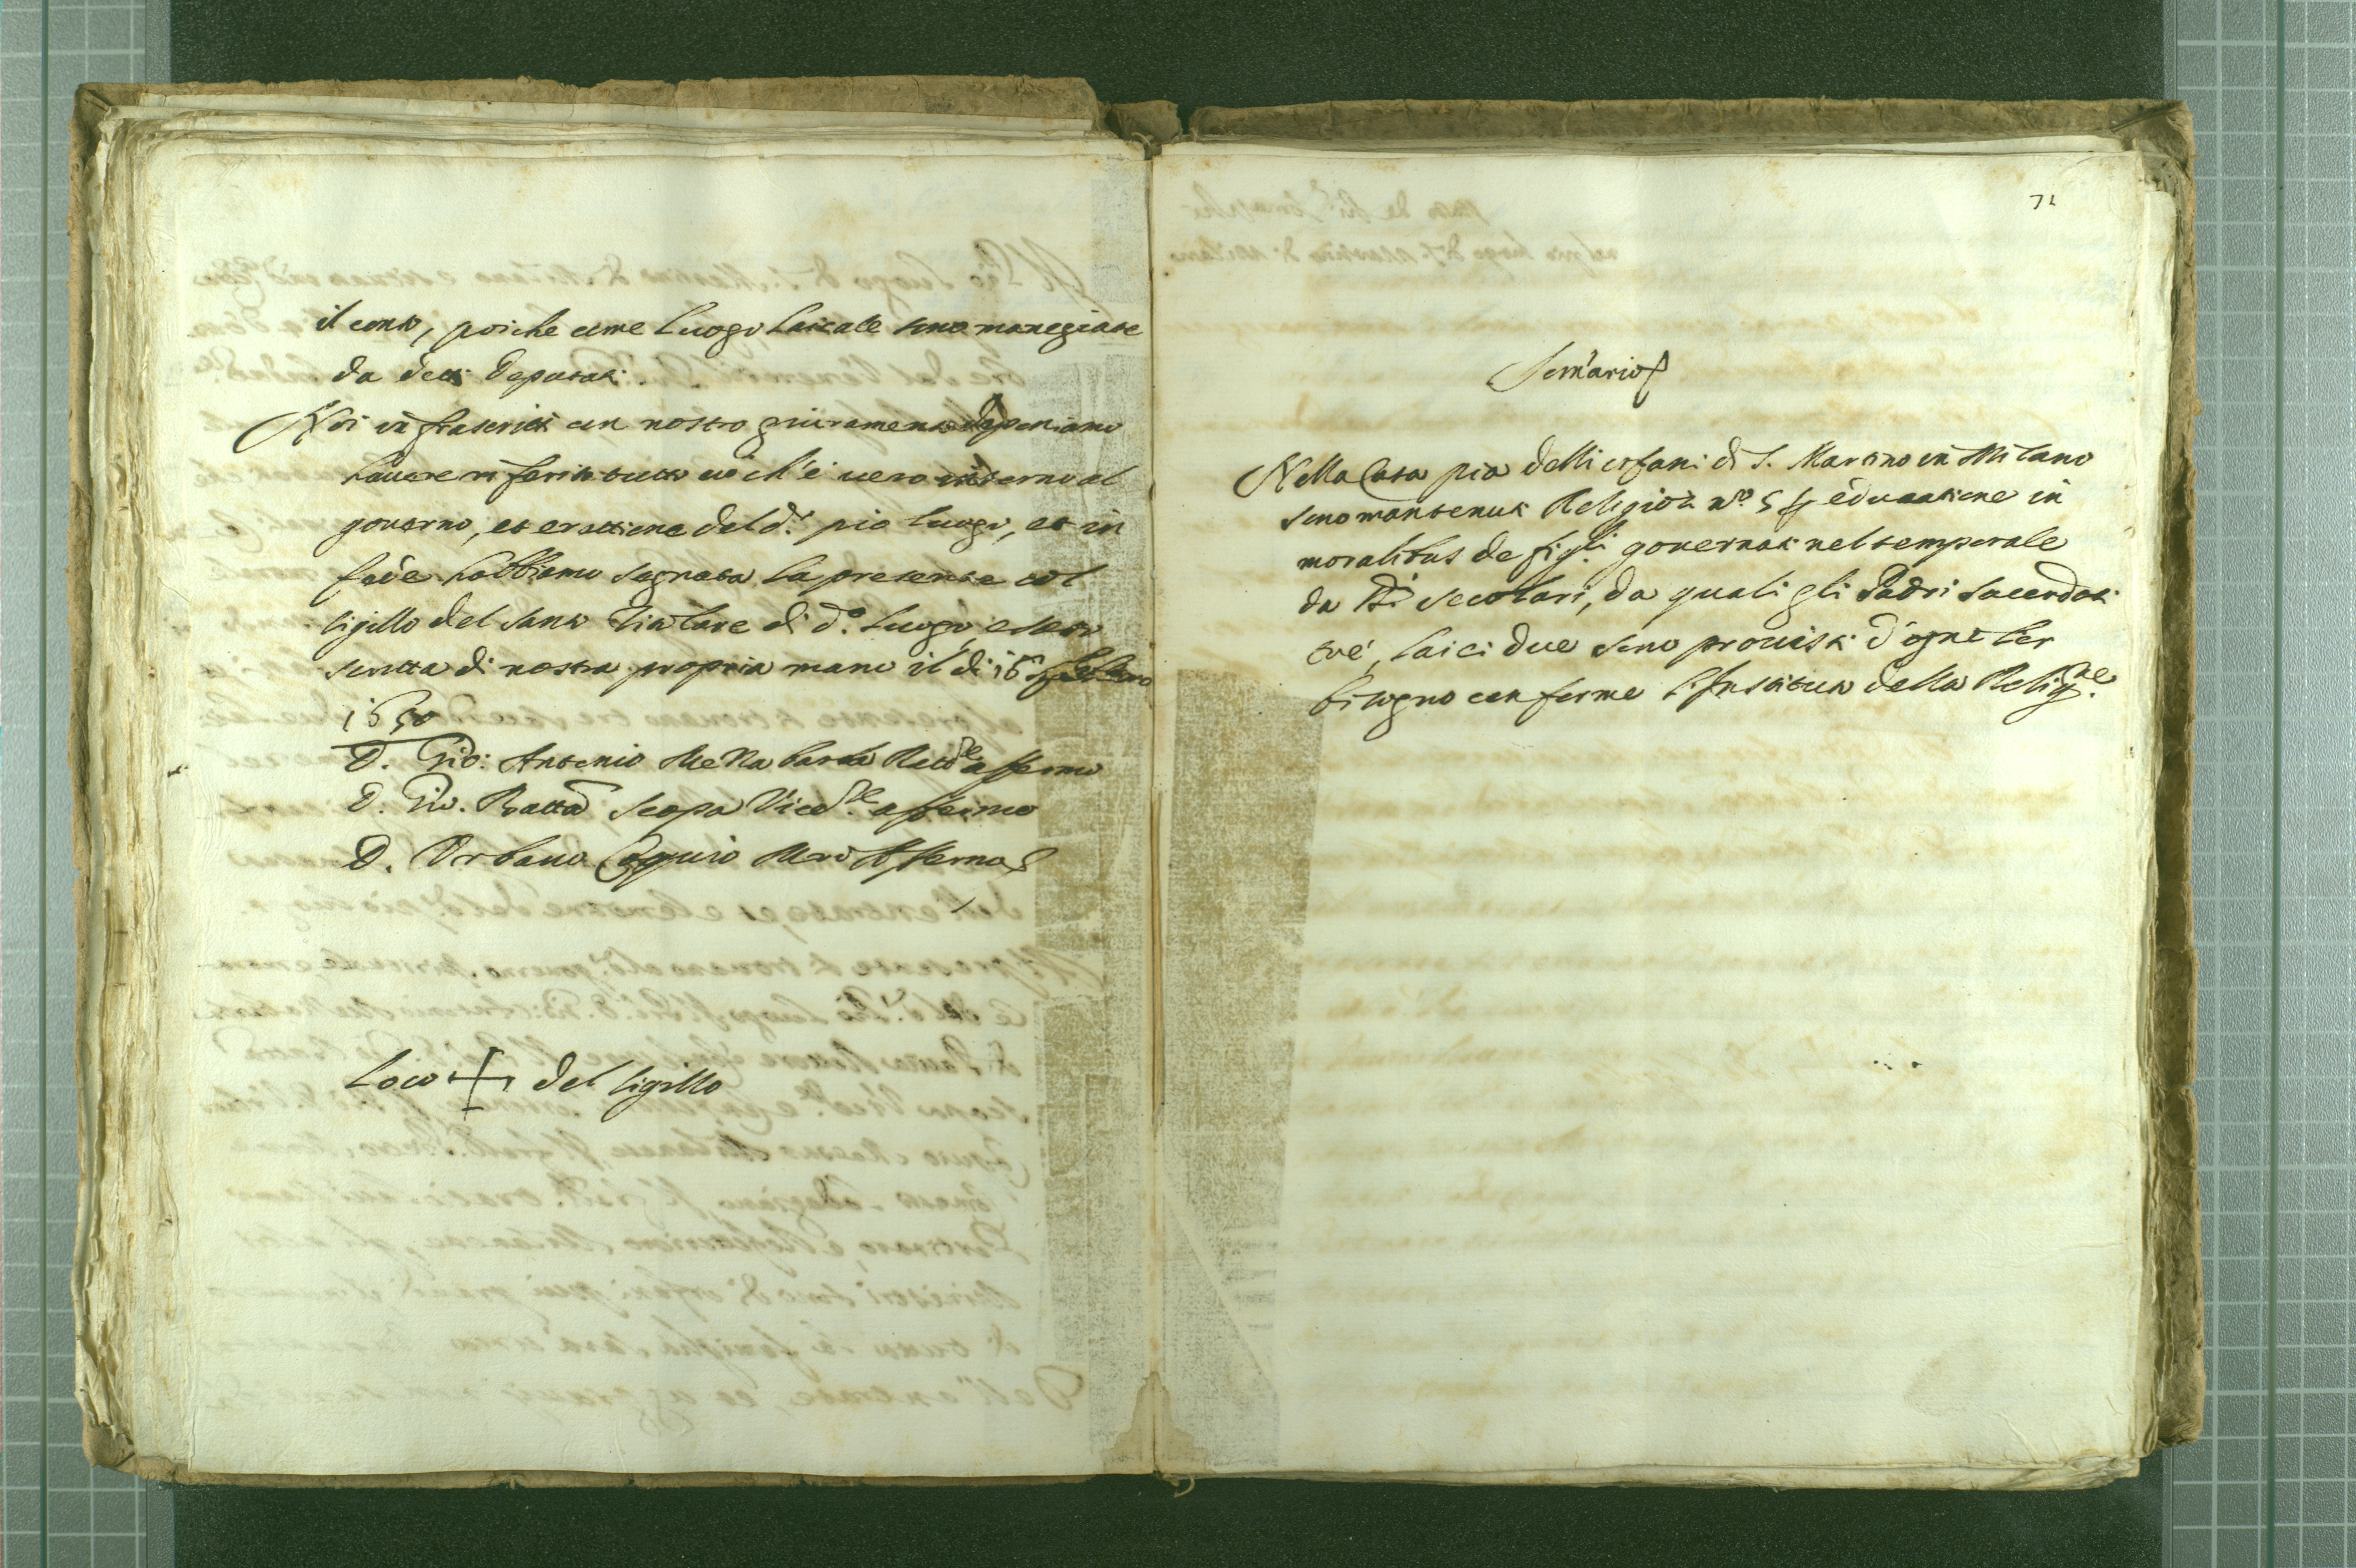 il conto, poiche come luogo laicale sono manegiate
da detti Deputati.
Noi infrascritti con nostro giuramento deponiamo
hauere riferito tutto ciò ch'è uero intorno al
gouerno, et erettione del d.º pio luogo, et in
fede habbiamo segnata la presente col
sigillo del santo Titolare di d.º luogo, e sotto
scritta di nostra propria mano il di 16 febbraro
1650
D. Gio: Antonio Mezzabarba affermo
D. Gio. Batta Scopa affermo
D. Urbano affermo
Loco + del sigillo
72
Som̃ario
Nella Casa pia delli orfani di S. Martino in Milano
sono mantenuti Religiosi nº 5 p educatione in
moralibus de figli gouernati nel temporale
da SSri secolari, da quali gli Padri sacerdoti
trè, laici due sono prouisti d'ogni lor
bisogno conforme l'Instituto della Relig.ne